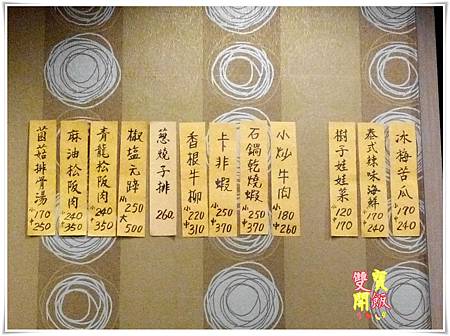 冰梅苦瓜 小170 中240
泰式辣味海鮮 小170 中240
樹子娃娃菜 小120 中170
小炒牛肉 小180 中260
石鍋乾燒蝦 小250 中370
卡非蝦 小250 中370
香根牛柳 小220 中310
蔥燒子排 260
椒塩元蹄 小250 大500
青龍松阪肉 小240 中350
麻油松阪肉 小240 中350
茵菇排骨湯 小170 中250
雙開